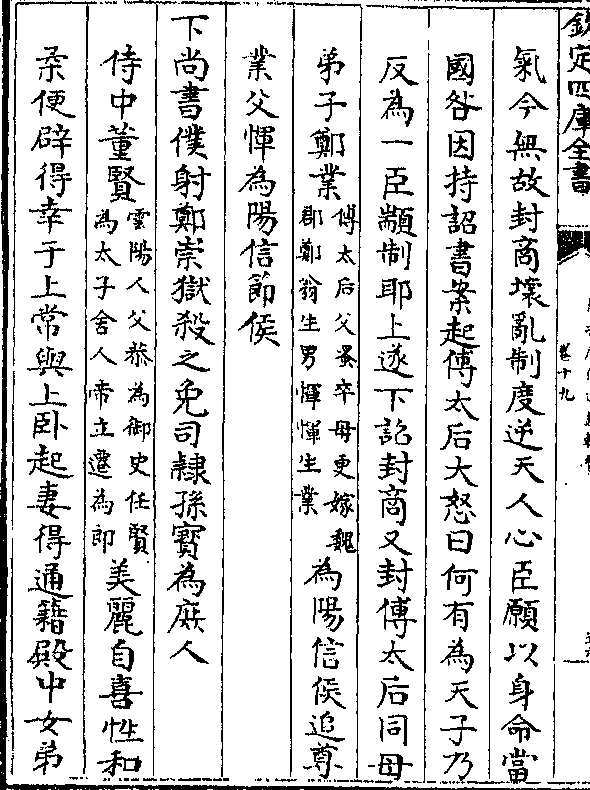 欽定四庫全書
卷十九
氣今無故封商壞亂制度逆天人心臣願以身命當
國咎因持詔書案起傅太后大怒曰何有為天子乃
反為一臣顓制耶上遂下詔封商又封傅太后同母
弟子鄭業傅太后父蚤卒母更嫁魏郡鄭翁生男惲惲生業為陽信侯追尊
業父惲為陽信節侯
下尚書僕射鄭崇獄殺之免司隸孫寳為庶人
侍中董賢雲陽人父恭為御史任賢為太子舍人帝立遷為郎美麗自喜性和
柔便辟得幸于上常與上卧起妻得通籍殿中女弟